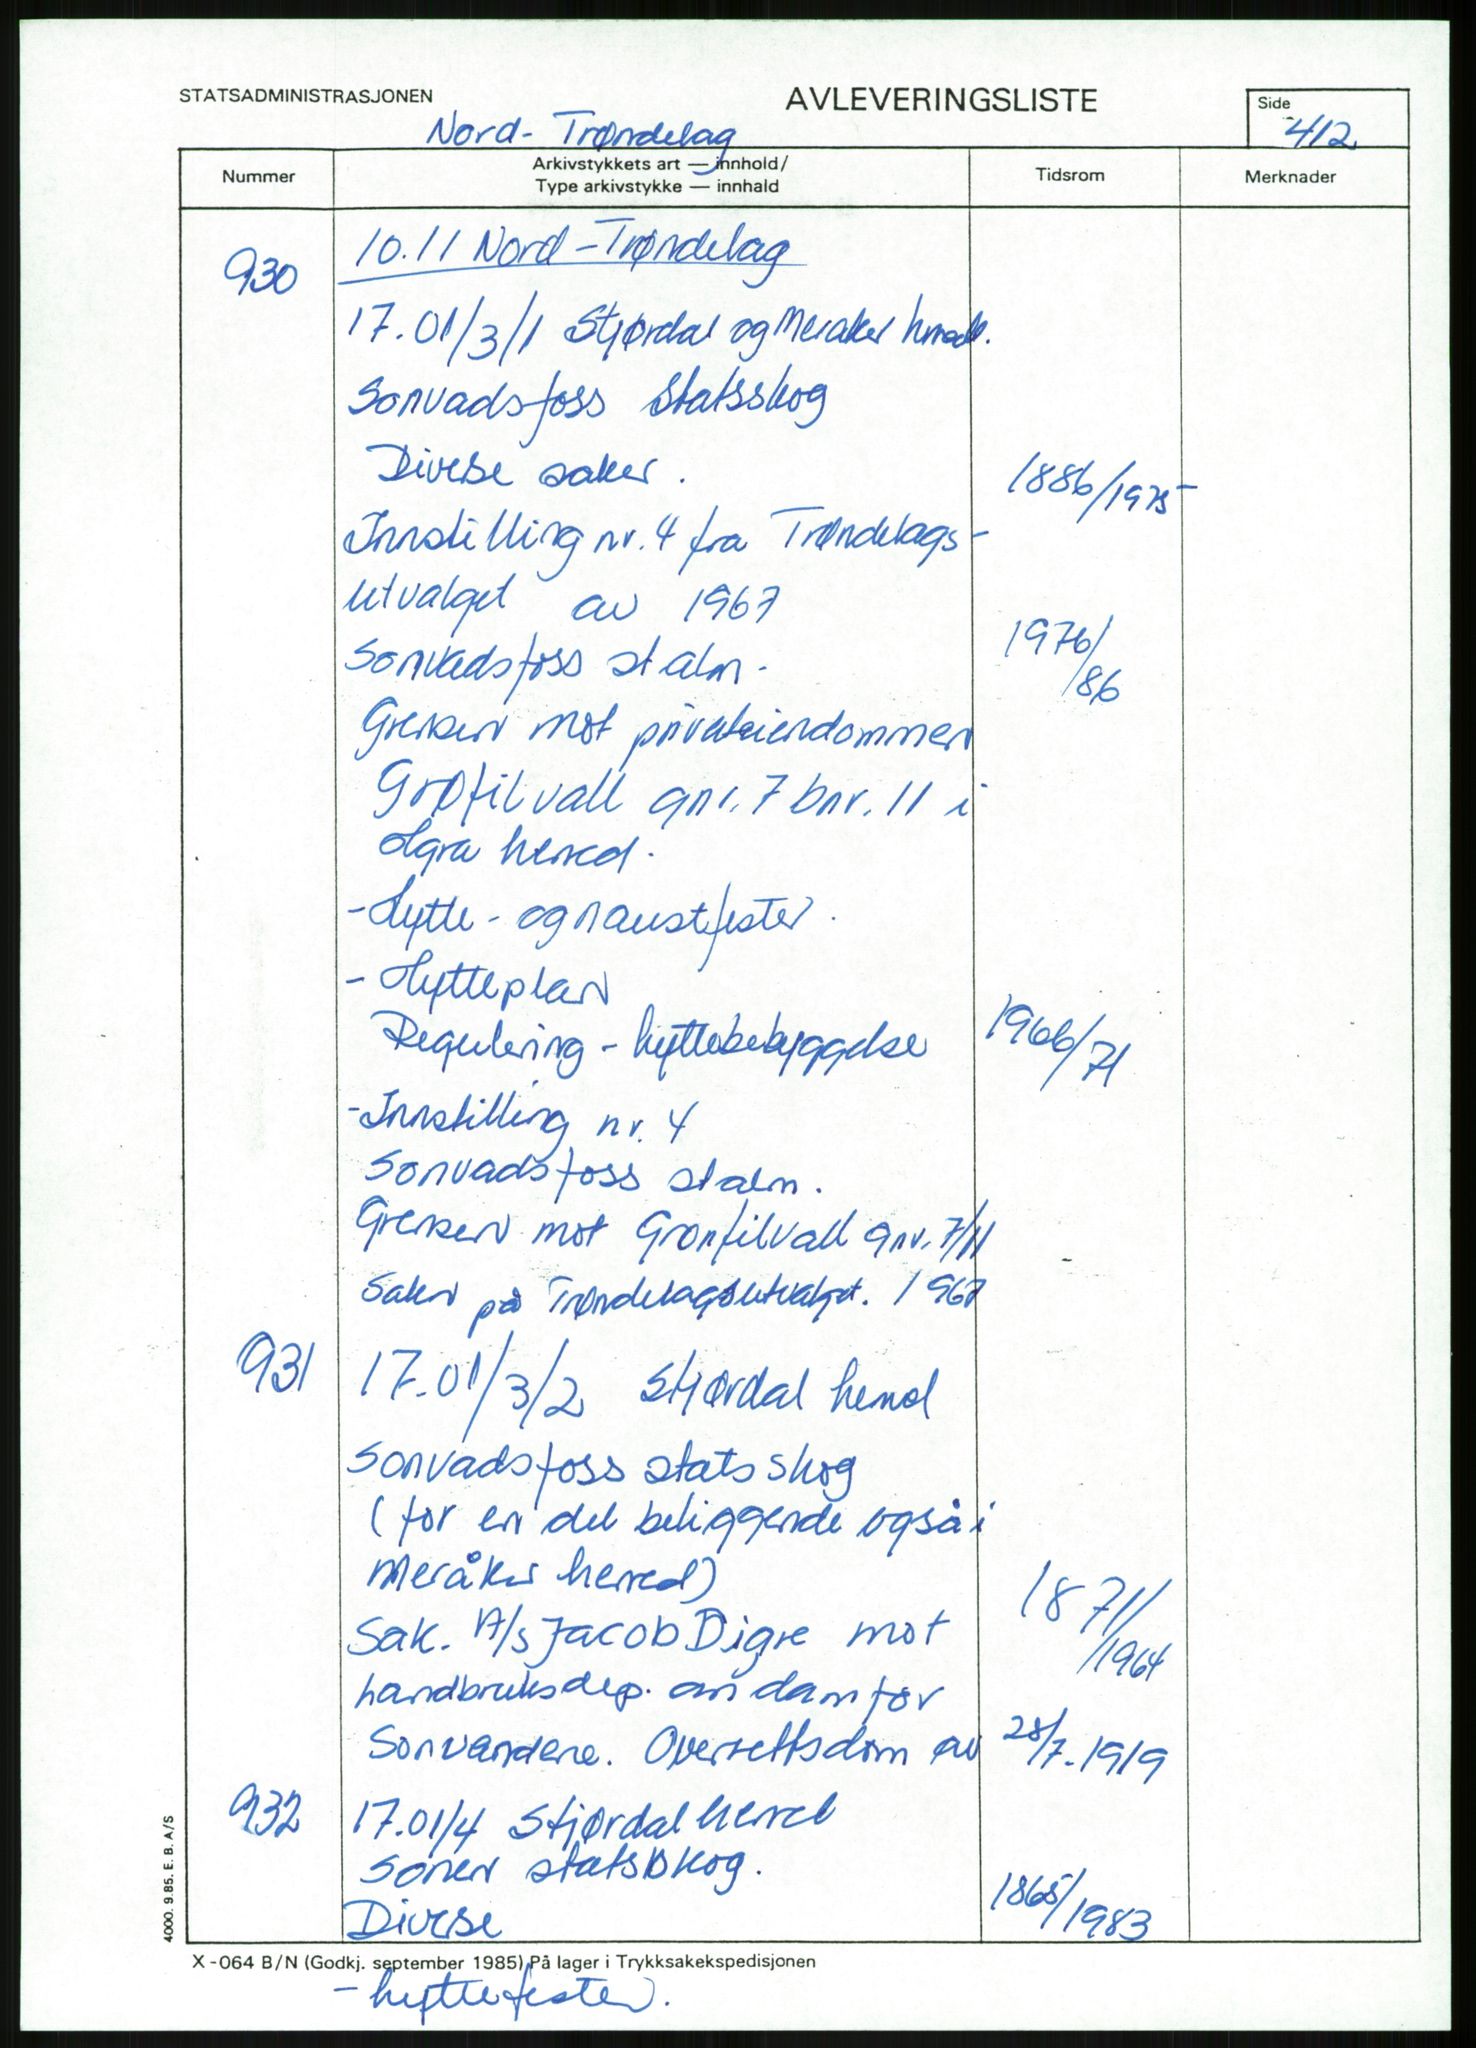 STATSADMINISTRASJONEN
AVLEVERINGSLISTE
Side
412
Nord-Trøndelag
Nummer
Arkivstykkets art — innhold/
Type arkivstykke — innhald
Tidsrom
Merknader
930
10.11 Nord-Trøndelag
17.01/3/1 Stjørdal og Meråker
Sonvadsfoss Statsskog
Diverse saker. 1886/1975
Innstilling nr. 4 fra Trøndelags-
utvalget av 1967
Sonvadsfoss st.alm. 1976/86
Grensen mot privateiendommen
Grøfilvall gnr. 7 bnr. 11 i
Hegra herred.
- Hytte- og naustfester.
- Hytteplan
Regulering - hyttebebyggelse 1966/71
- Innstilling nr. 4
Sonvadsfoss st alm.
Grensen mot Gronfilvall gnr. 7/11
Saken på Trøndelagsutvalget. 1967
931
17.01/3/2 Stjørdal herred
Sonvadsfoss statsskog
(for en del beliggende også i
Meråker herred) 1871/1964
Sak. A/S Jacob Digre mot
Landbruksdep. om dam for
Sonvandene. Overrettsdom av 28/7-1919
932
17.01/4 Stjørdal herred
Sonen statsskog.
Diverse 1865/1983
4000. 9.85. E. B. A/S
X-064 B/N (Godkj. september 1985) På lager i Trykksakekspedisjonen
- hyttefester.